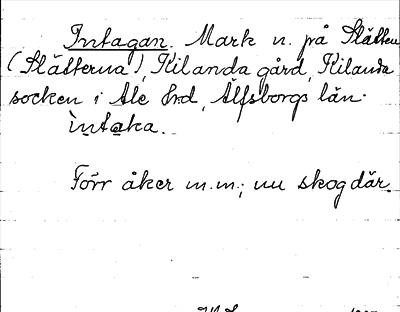 Intagan. Mark n. på Slätten
(Slätterna), Kilanda gård, Kilanda
socken i Ale hd, Älfsborgs län.
ìntaka.
Förr åker m.m.; nu skog där.